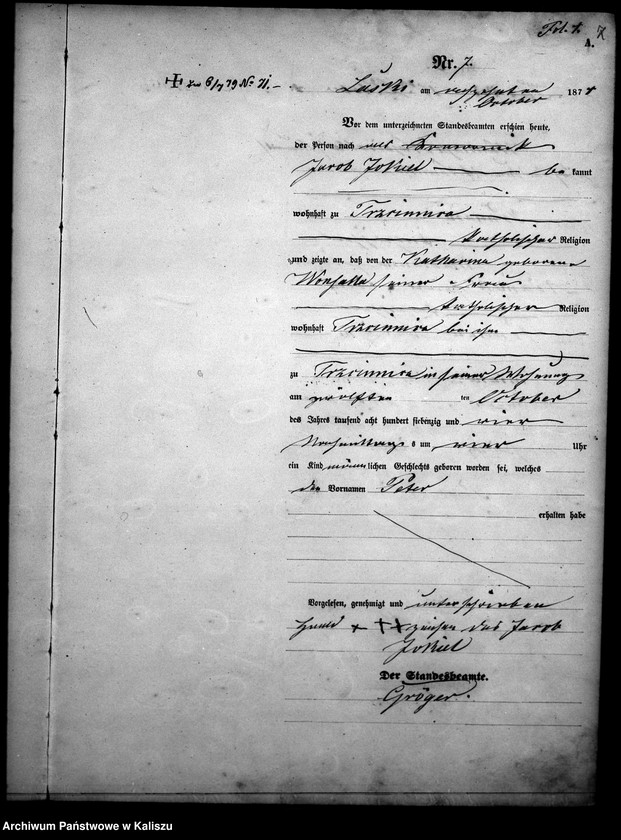 Fol. 7. 7
A.
Nr. 7.
8/7 79 No 71.–
Laski am October 1874
Vor dem unterzeichneten Standesbeamten erschien heute,
der Person nach
Jacob Jokiel be kannt
wohnhaft zu Trzcinnica
katholischer Religion
und zeigte an, daß von der Katharina geborene
seiner Frau
katholischer Religion
wohnhaft Trzcinnica bei ihm
zu Trzcinnica in seiner Wohnung
am zwölften ten October
des Jahres tausend acht hundert siebenzig und vier
Nachmittags um vier Uhr
ein Kind männlichen Geschlechts geboren worden sei, welches
den Vornamen Peter
erhalten habe
Vorgelesen, genehmigt und unterschrieben
Hand +++ zeichen des Jacob
Jokiel
Der Standesbeamte.
Gröger.
Archiwum Państwowe w Kaliszu